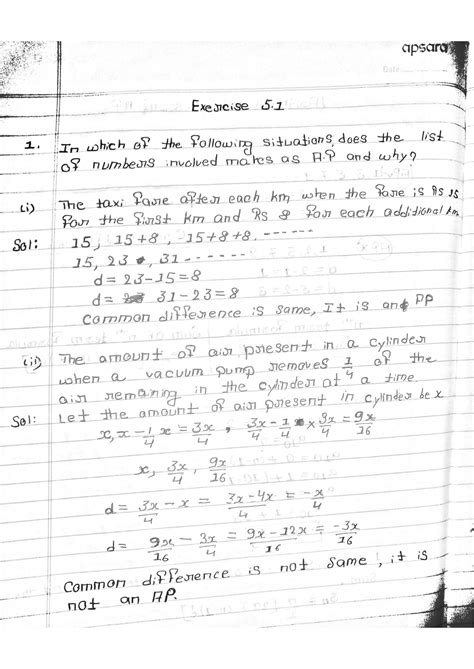 apsara
Date
Exercise 5.1
1. In which of the following situations, does the list
of numbers involved makes as A.P and why?
(i) The taxi fare after each km when the fare is Rs 15
for the first km and Rs 8 for each additional km
Sol: 15, 15+8, 15+8+8, ------
15, 23, 31 -------
d = 23-15=8
d = 31-23=8
Common difference is same, It is an AP
(ii) The amount of air present in a cylinder
when a vacuum pump removes 1/4 of the
air remaning in the cylinder at a time.
Sol: Let the amount of air present in cylinder be x
x, x - 1/4 x = 3x/4, 3x/4 - 1/4 × 3x/4 = 9x/16
x, 3x/4, 9x/16
d = 3x/4 - x = 3x-4x/4 = -x/4
d = 9x/16 - 3x/4 = 9x-12x/16 = -3x/16
Common difference is not same, it is
not an AP.